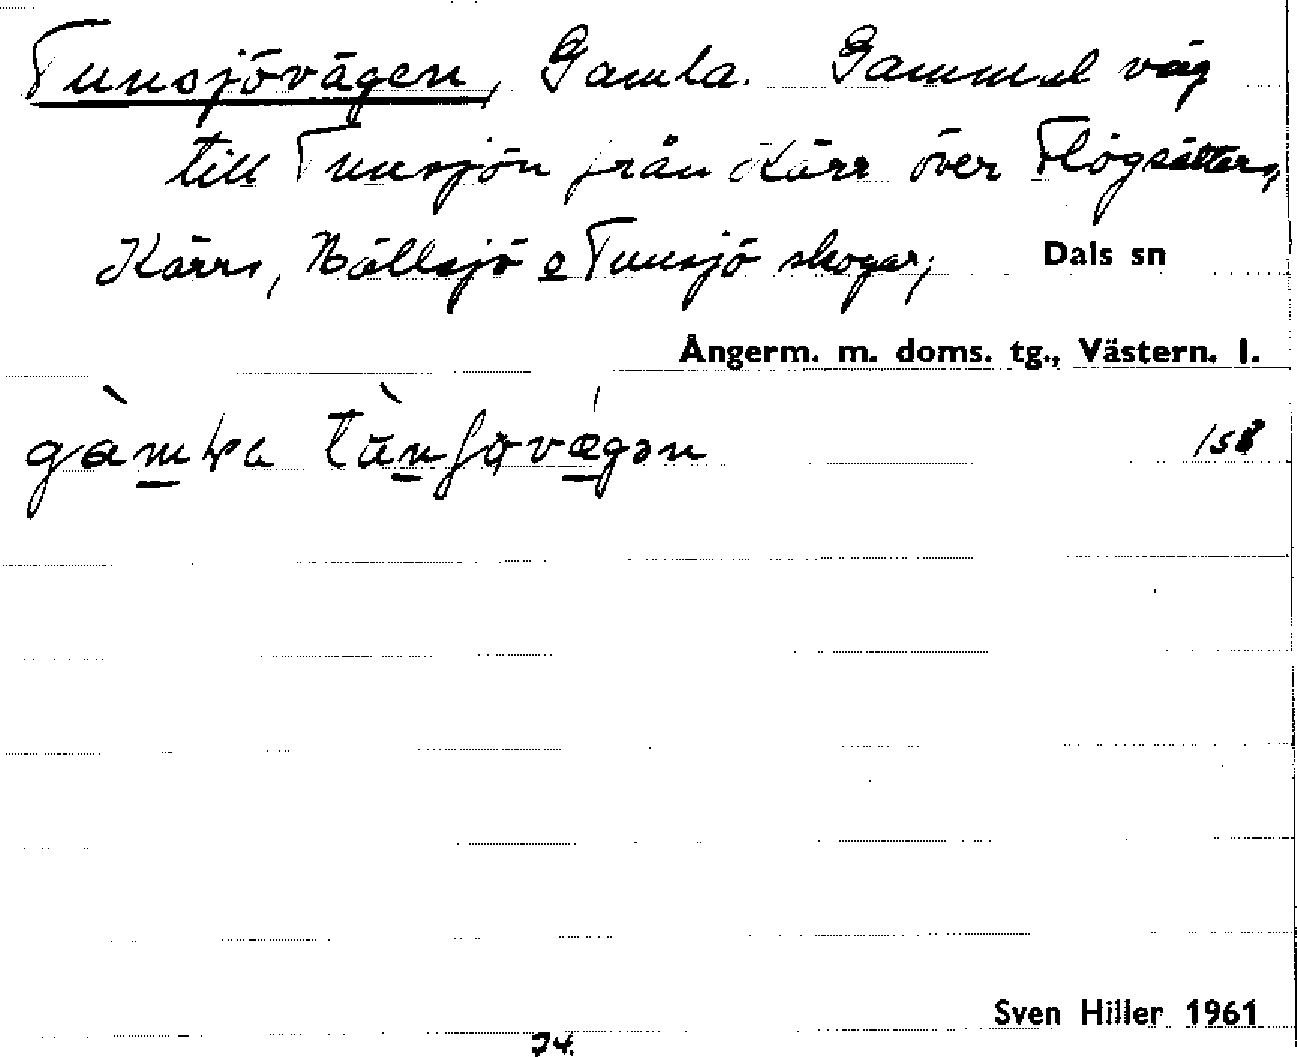 Tunsjövägen, Gamla. Gammal väg
till Tunsjön från Kärr över Flögsätters,
Kärrs, Bällsjö o Tunsjö skogar, Dals sn
Ångerm. m. doms. tg., Västern. l.
158
Sven Hiller 1961